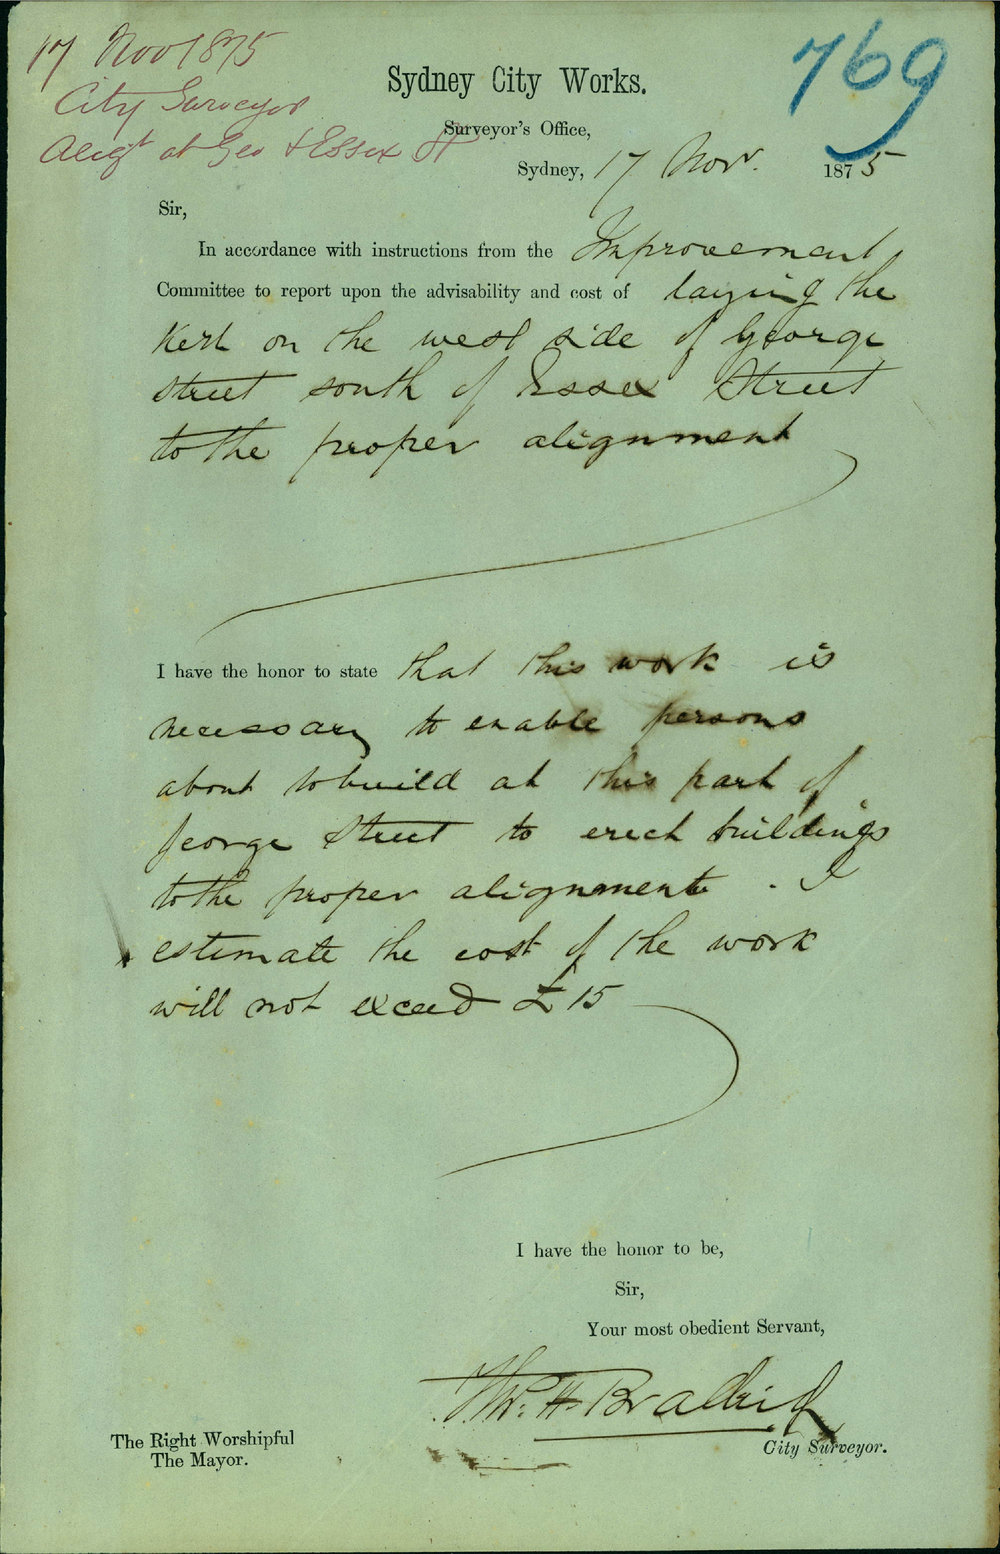 17 Nov 1875
City Surveyor
Aligt at Geo & Essex St
769
Sydney City Works.
Surveyor's Office,
Sydney, 17 Novr. 1875
Sir,
In accordance with instructions from the Improvement
Committee to report upon the advisability and cost of laying the
Kerb on the west side of George
Street south of Essex Street
to the proper alignment
I have the honor to state that this work is
necessary to enable persons
about to build at this part of
George Street to erect buildings
to the proper alignment. I
estimate the cost of the work
will not exceed £15
I have the honor to be,
Sir,
Your most obedient Servant,
Thos. H. Bradridge
City Surveyor.
The Right Worshipful
The Mayor.